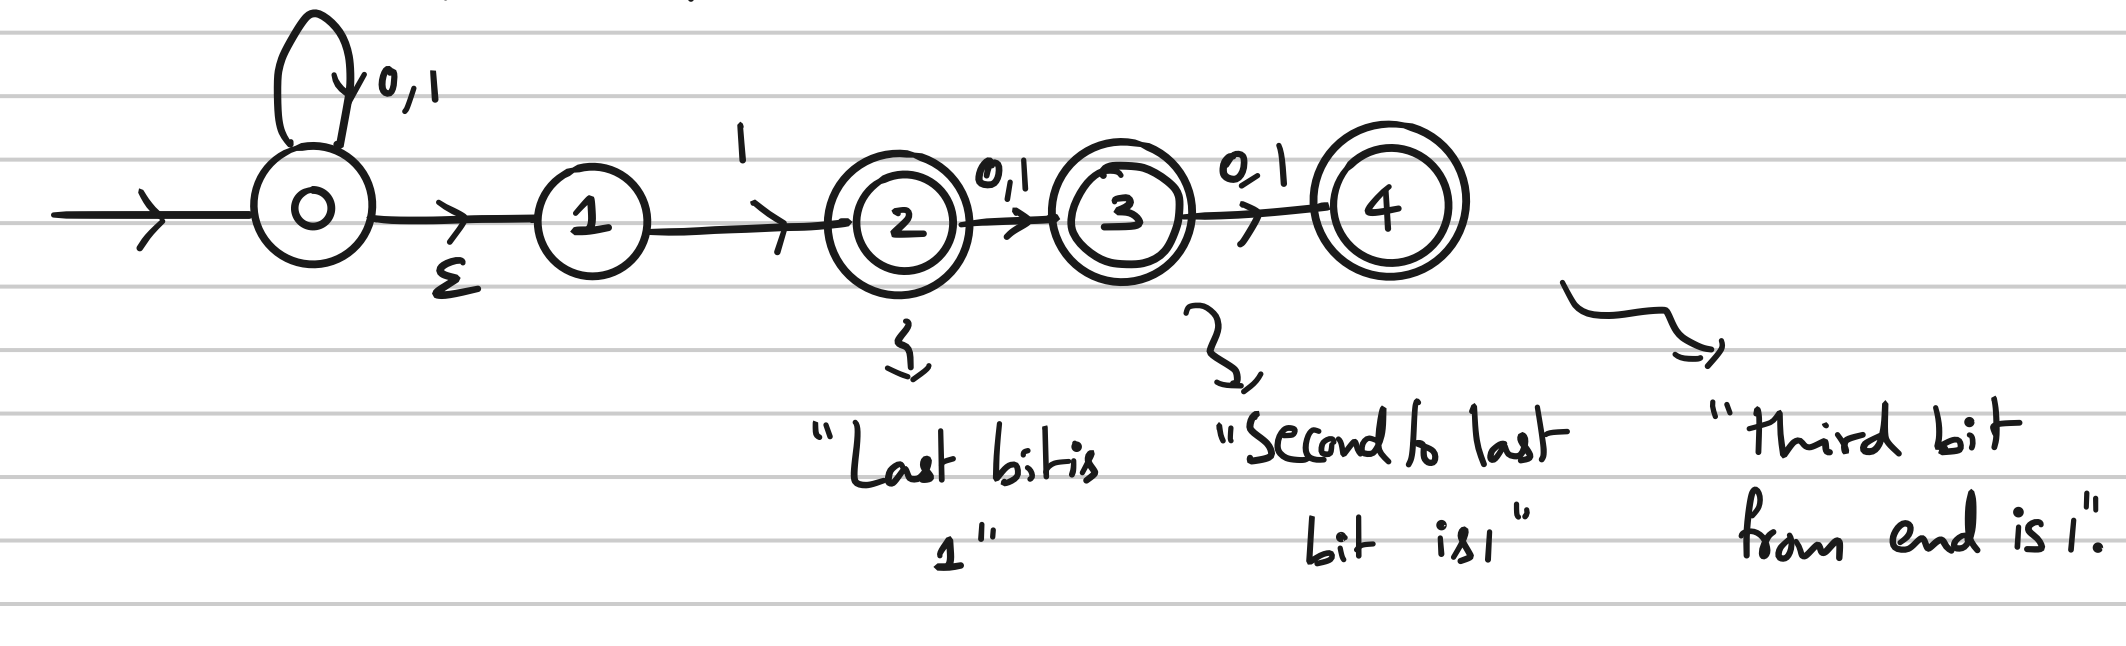 0,1
1
0,1
0,1
0
1
2
3
4
ε
"Last bit is
1"
"Second to last
bit is 1"
"third bit
from end is 1".